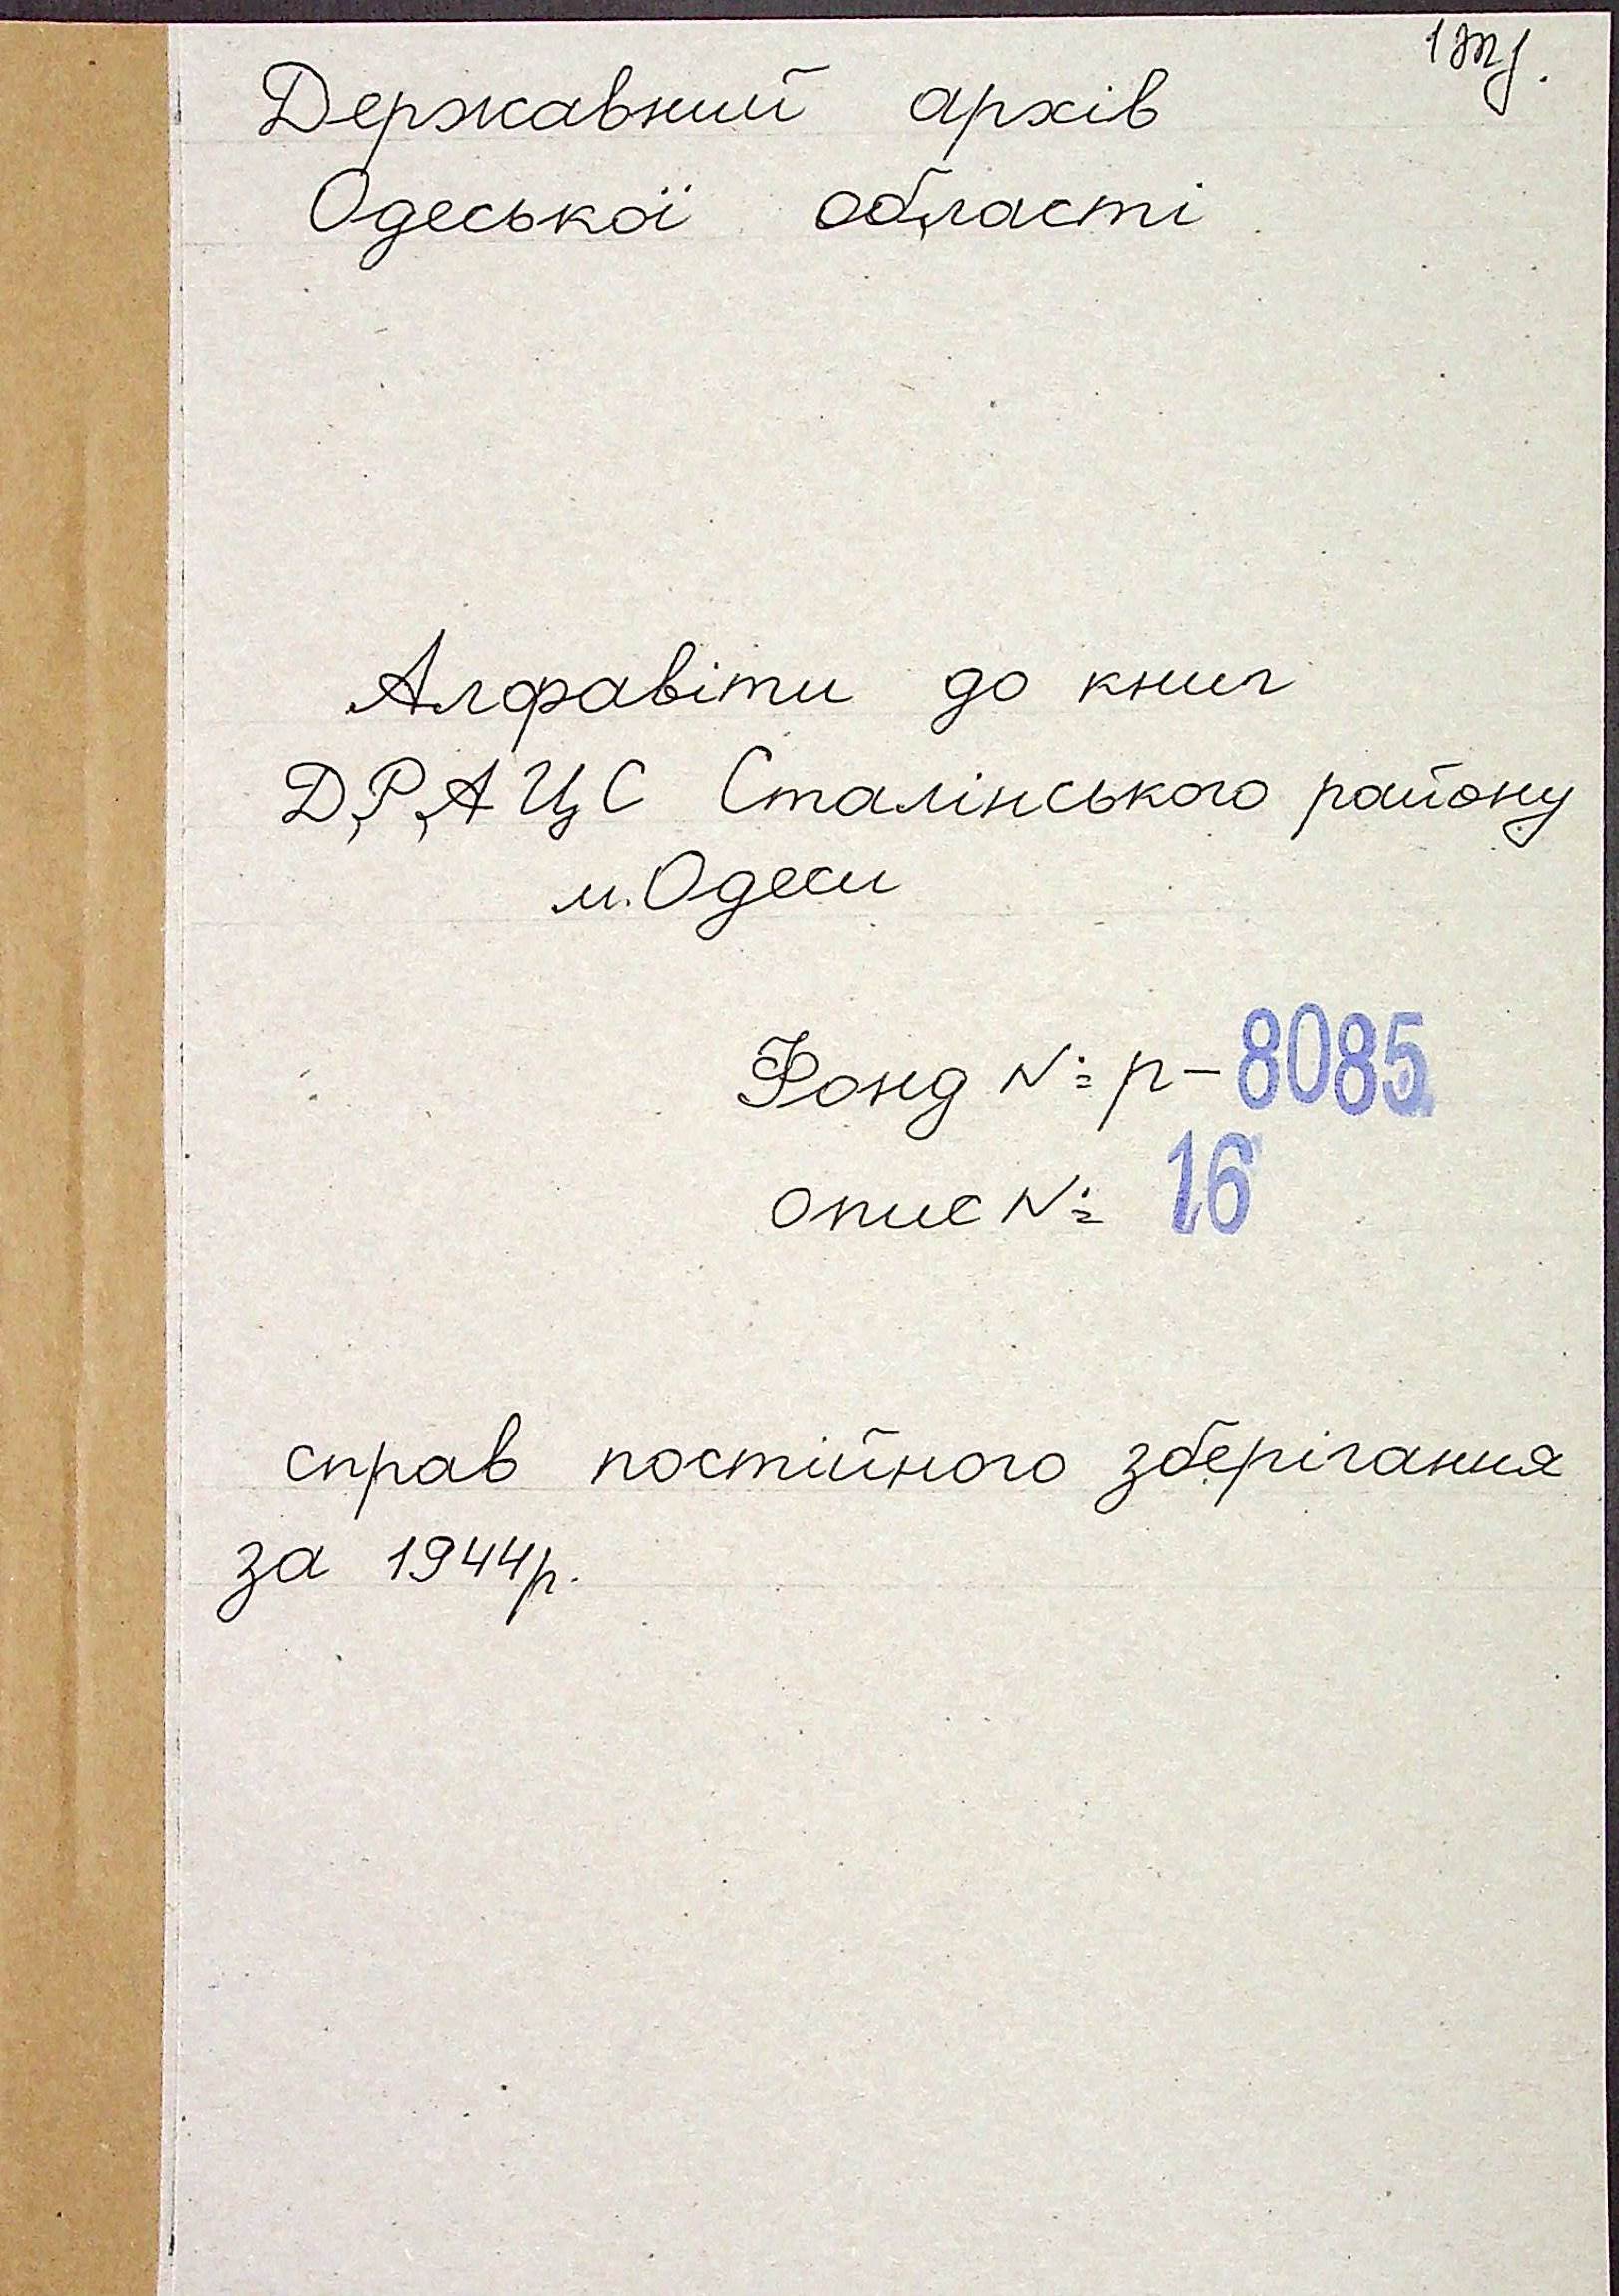 Державний архів
Одеської області
Алфавіти до книг
ДРАЦС Сталінського району
м. Одеси
Фонд № р-8085
опис № 16
справ постійного зберігання
за 1944р.